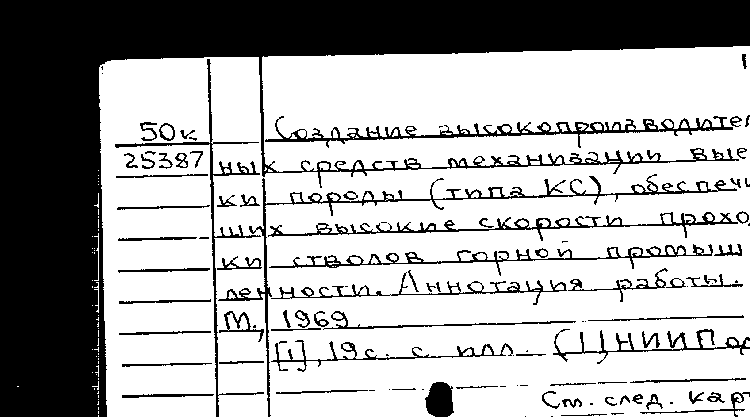 50к Создание высокопроизводител
25387 ных средств механизации выем
ки породы (типа КС), обеспечи
щих высокие скорости прохо
ки стволов горной промыш
ленности. Аннотация работы.
М., 1969
[1], 19с. с илл. (ЦНИИПод
См. след. кар